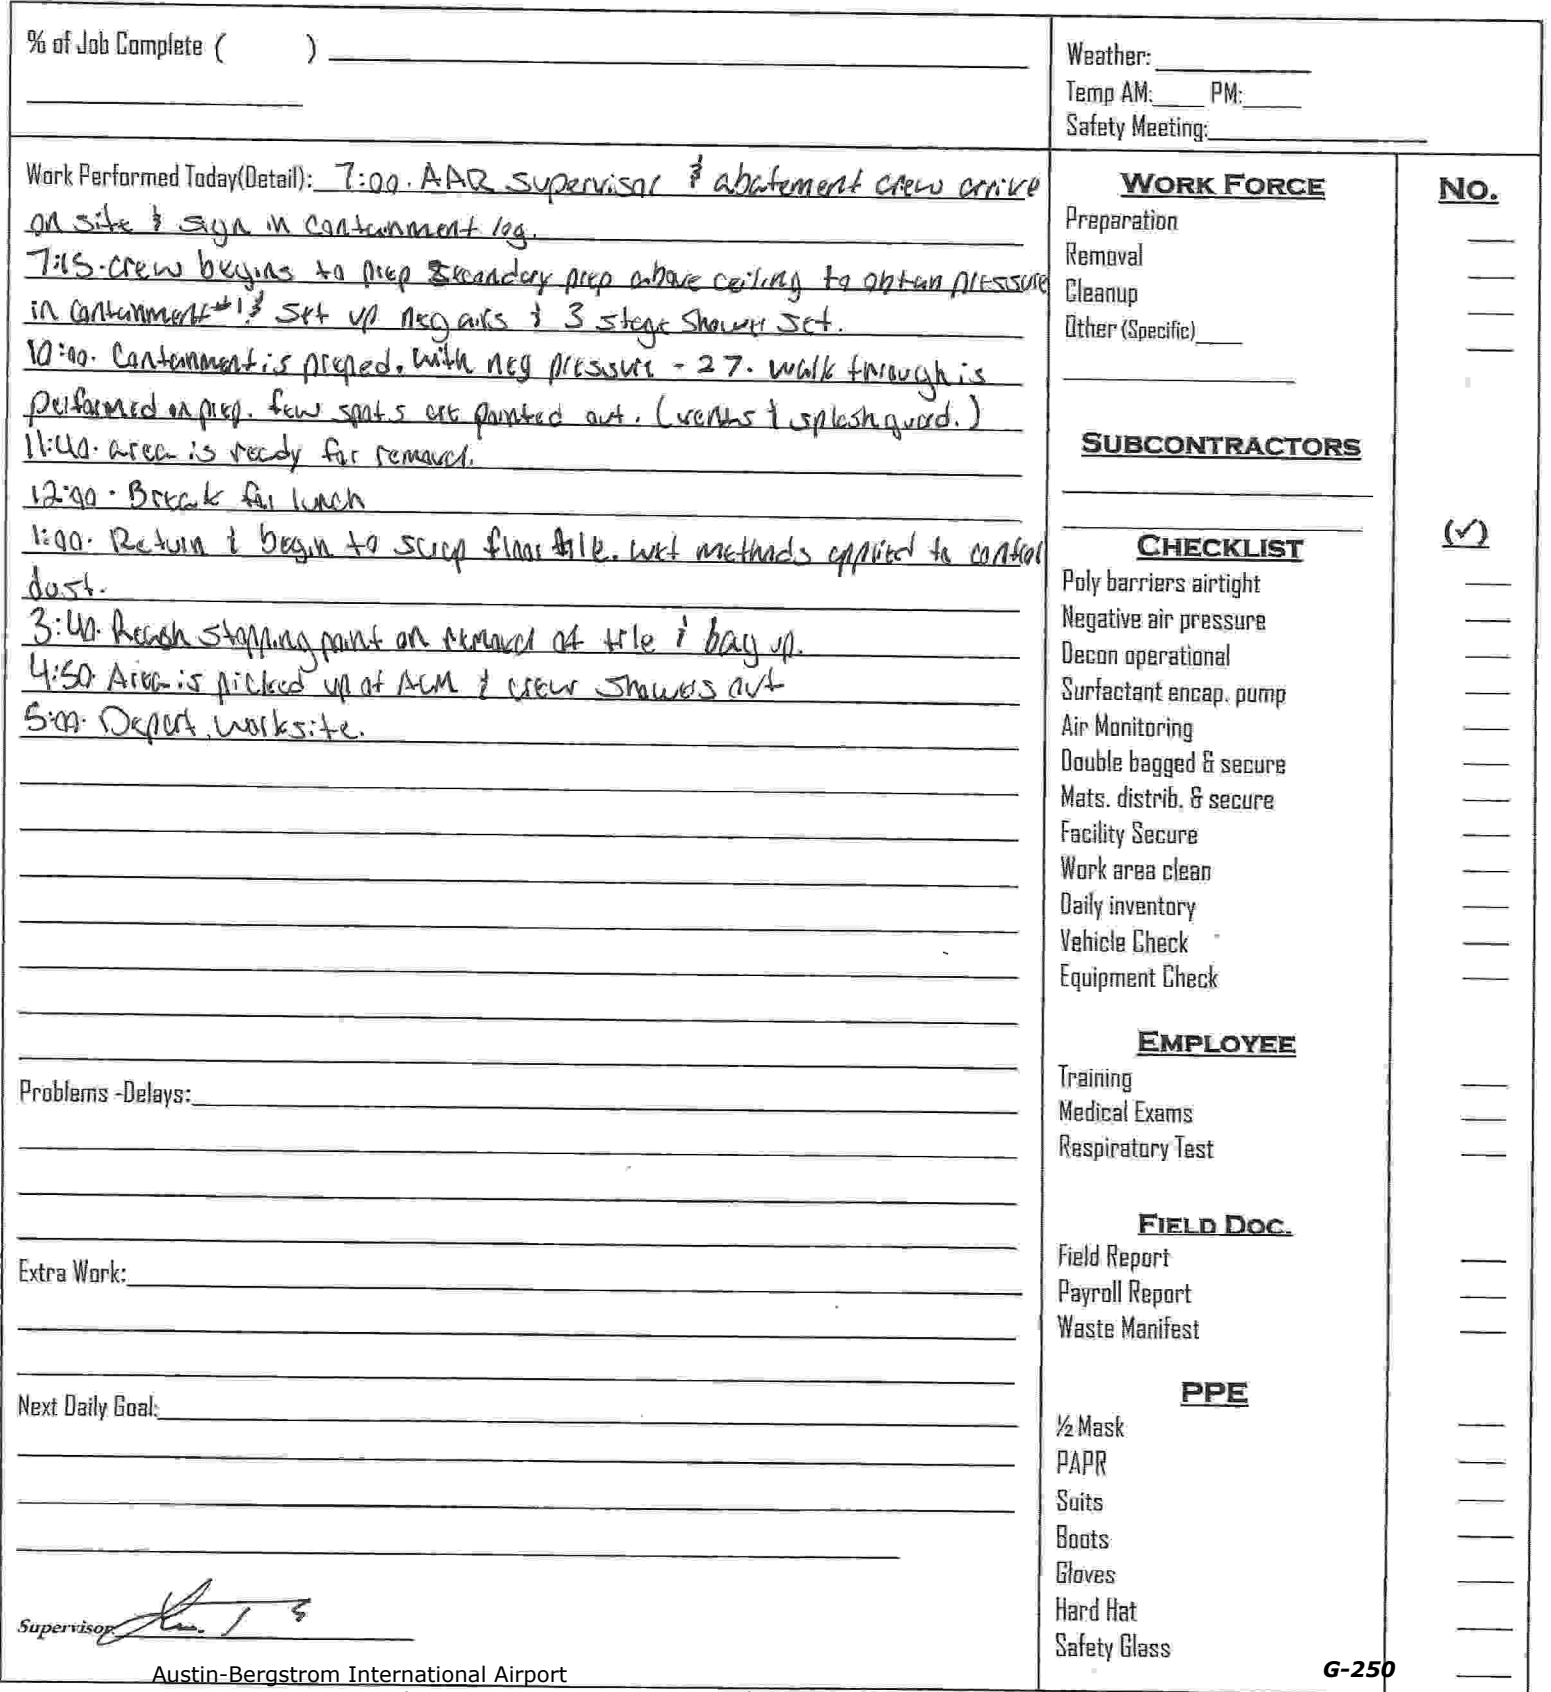 % of Job Complete (       )
Weather:
Temp AM:      PM:
Safety Meeting:
Work Performed Today(Detail): 7:00. AAR supervisor & abatement crew arrive
on site & sign in containment log.
7:15. crew begins to prep secondary prep above ceiling to obtain pressure
in containment #1 & set up neg airs & 3 stage shower set.
10:00. Containment is preped. with neg pressure - 27. walk through is
performed on prep. few spots are pointed out. (vents & splashguard.)
11:40. area is ready for removal.
12:00. Break for lunch
1:00. Return & begin to scrap floor tile. wet methods applied to control
dust.
3:40. Reach stopping point on removal of tile & bag up.
4:50. Area is picked up of ACM & crew showers out
5:00. Depart worksite.
Problems -Delays:
Extra Work:
Next Daily Goal:
Supervisor
WORK FORCE NO.
Preparation
Removal
Cleanup
Other (Specific)
SUBCONTRACTORS
CHECKLIST (✓)
Poly barriers airtight
Negative air pressure
Decon operational
Surfactant encap. pump
Air Monitoring
Double bagged & secure
Mats. distrib. & secure
Facility Secure
Work area clean
Daily inventory
Vehicle Check
Equipment Check
EMPLOYEE
Training
Medical Exams
Respiratory Test
FIELD DOC.
Field Report
Payroll Report
Waste Manifest
PPE
½ Mask
PAPR
Suits
Boots
Gloves
Hard Hat
Safety Glass
Austin-Bergstrom International Airport
G-250